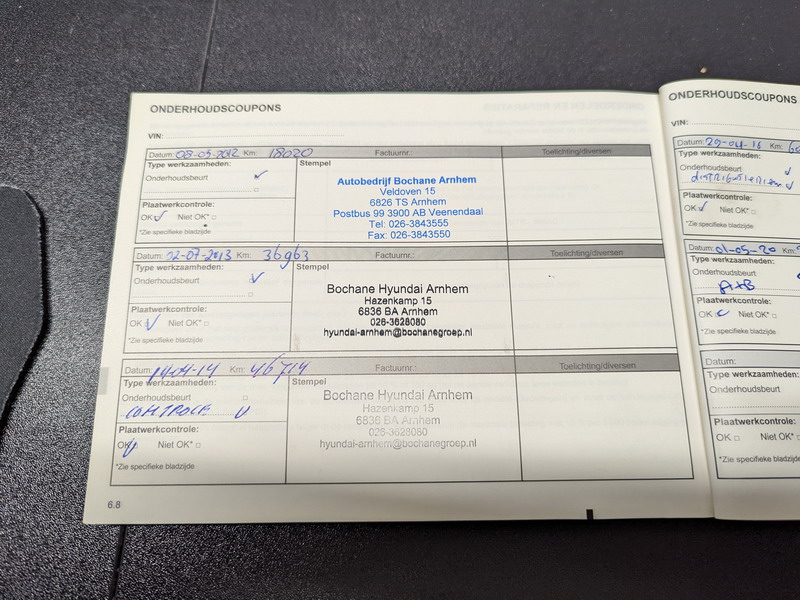 ONDERHOUDSCOUPONS
VIN:
Datum: 08-05-2012 Km: 18020 Factuurnr.: Toelichting/diversen
Type werkzaamheden:
Onderhoudsbeurt
Plaatwerkcontrole:
OK Niet OK*
*Zie specifieke bladzijde
Stempel
Autobedrijf Bochane Arnhem
Veldoven 15
6826 TS Arnhem
Postbus 99 3900 AB Veenendaal
Tel: 026-3843555
Fax: 026-3843550
Datum: 02-07-2013 Km: 36963 Factuurnr.: Toelichting/diversen
Type werkzaamheden:
Onderhoudsbeurt
Plaatwerkcontrole:
OK Niet OK*
*Zie specifieke bladzijde
Stempel
Bochane Hyundai Arnhem
Hazenkamp 15
6836 BA Arnhem
026-3628080
hyundai-arnhem@bochanegroep.nl
Datum: 14-04-14 Km: 46714 Factuurnr.: Toelichting/diversen
Type werkzaamheden:
Onderhoudsbeurt
CONTROLE
Plaatwerkcontrole:
OK Niet OK*
*Zie specifieke bladzijde
Stempel
Bochane Hyundai Arnhem
Hazenkamp 15
6836 BA Arnhem
026-3628080
hyundai-arnhem@bochanegroep.nl
6.8
ONDERHOUDSCOUPONS
VIN:
Datum: 29-04-16 Km:
Type werkzaamheden:
Onderhoudsbeurt
distributieriem
Plaatwerkcontrole:
OK Niet OK*
*Zie specifieke bladzijde
Datum: 01-05-20 Km:
Type werkzaamheden:
Onderhoudsbeurt
A+B
Plaatwerkcontrole:
OK Niet OK*
*Zie specifieke bladzijde
Datum:
Type werkzaamheden:
Onderhoudsbeurt
Plaatwerkcontrole:
OK Niet OK*
*Zie specifieke bladzijde